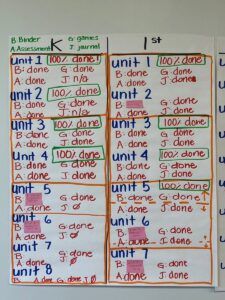 B Binder G: games
A: Assessment K J: journal
unit 1 100% done!
B: done G: done
A: done J: n/a
unit 2 100% done
B: done G: done
A: done J: n/a
unit 3 100% done
B: done G: done
A: done J: done
unit 4 100% done
B: done G: done
A: done J: done
unit 5
B: G: done
A: done J: done
unit 6
B: G: done
A: done J: Ø
unit 7
B: done G: done
A: done J: Ø
unit 8
B A: done G: done J Ø
1st
unit 1 100% done
B: done G: done
A: done J: done
unit 2
B: G: done
A: done J: done
unit 3 100% done
B: done G: done
A: done J: done
unit 4 100% done
B: done G: done
A: done J: done
unit 5 100% done
B: done G: done
A: done J: done
unit 6
B: G: done
A: done J: done
unit 7
B: G: done
A: done J: done